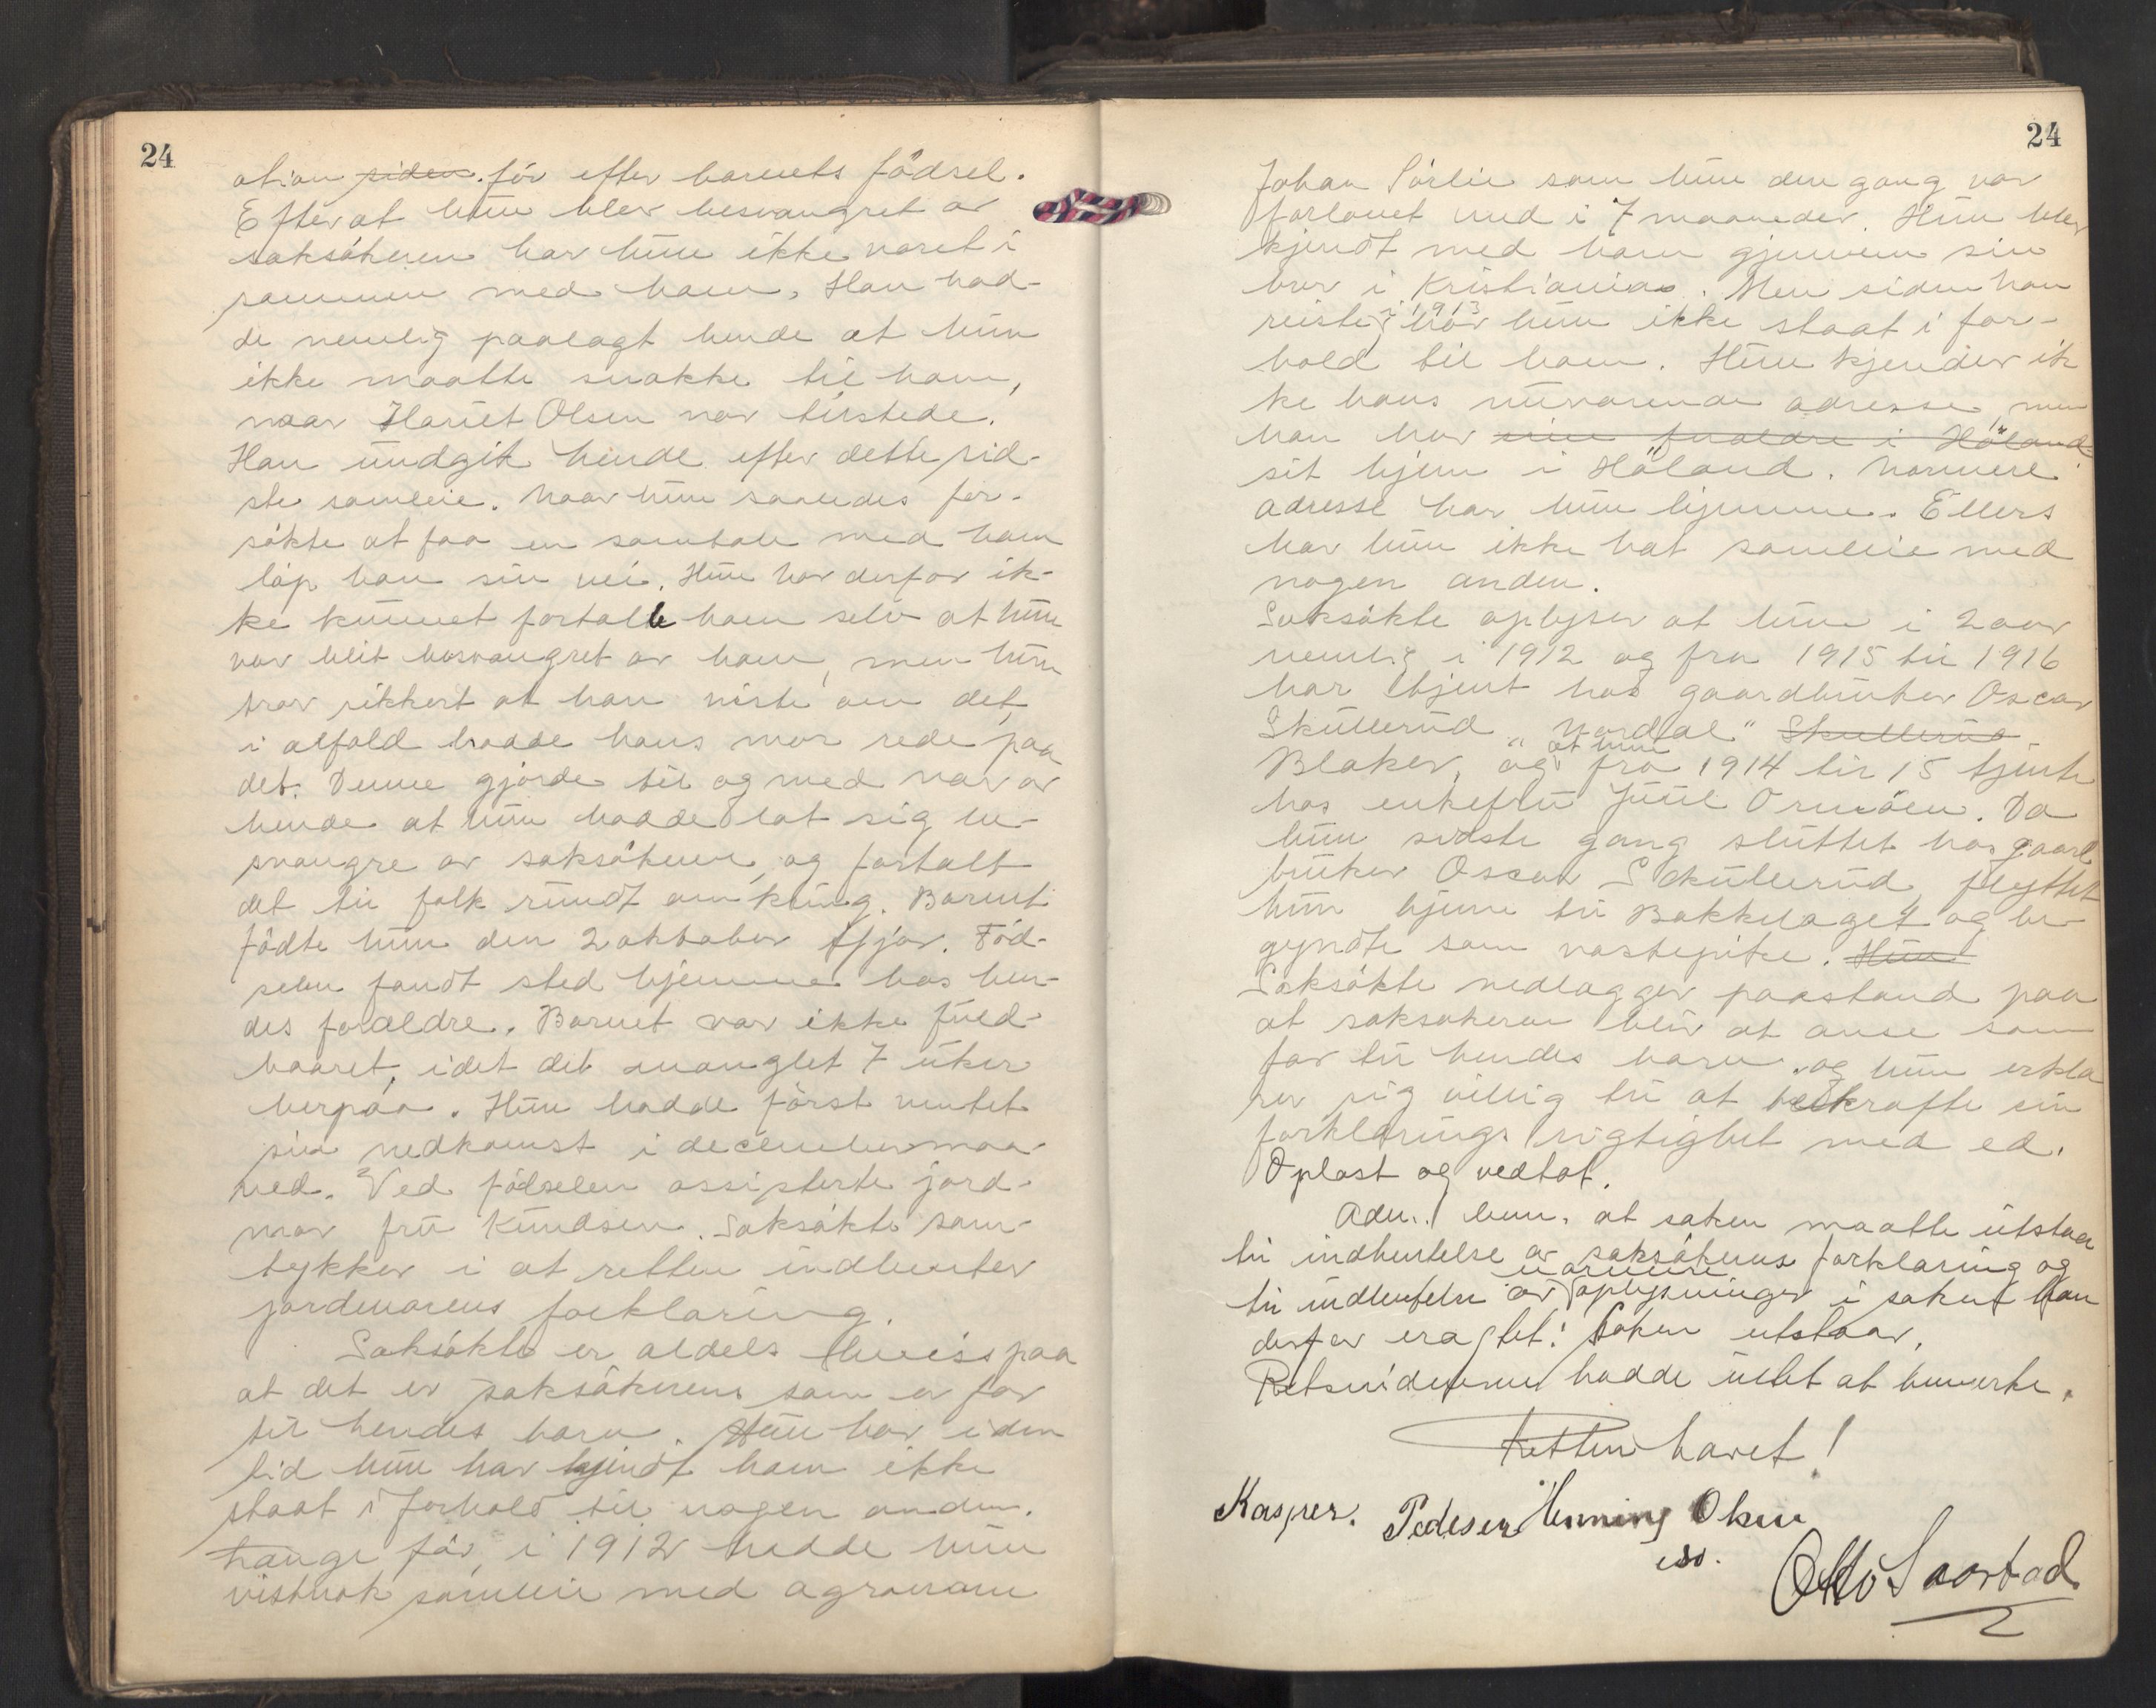 24
ation siden. för efter barnets födsel.
Efterat hun blev besvangret av
saksökeren har hun ikke varet i
sammen med ham, Han had-
de nemlig paalagt hende at hun
ikke maatte snakke til ham,
naar Hariet Olsen var tilstede.
Han undgik hende efter dette sid-
ste samleie. Naar hun saaledes for-
sökte at faa en samtale med ham
löp han sin vei. Hun har derfor ik-
ke kunnet fortalle ham selv at hun
var blit besvangret av ham, men hun
tror sikkert at han viste om det,
i alfald hadde hans mor rede paa
det. Denne gjorde til og med nar av
hende at hun hadde lat sig be-
svangre av saksökeren, og fortalt
det til folk rundt omkring. Barnet
födte hun den 2 oktober ifjor. Föd-
selen fandt sted hjemme hos hen-
des foraldre. Barnet var ikke fuld-
baaret, idet det manglet 7 uker
herpaa. Hun hadde först ventet
sin nedkomst i december maa-
ned. Ved födselen assisterte jord-
mor fru Knudsen. Saksökte sam-
tykker i at retten indhenter
jordmorens forklaring.
Saksökte er aldels viss paa
at det er saksökeren som er far
til hendes barn. Hun har i den
tid hun har kjendt ham ikke
staat i forhold til nogen anden.
Lange för, i 1912 hadde hun
vistnok samleie med agronom
24
Johan Sörlie som hun den gang var
forlovet med i 7 maaneder. Hun blev
kjendt med ham gjennem sin
bror i Kristiania. Men siden han
reiste i 1913 har hun ikke staat i for-
hold til ham. Hun kjender ik
ke hans nuvarende adresse, men
han har sine foraldre i Höland
sit hjem i Höland. Narmere
adresse har hun hjemme. Ellers
har hun ikke hat samleie med
nogen anden.
Saksökte oplyser at hun i 2 aar
nemlig i 1912 og fra 1915 til 1916
har tjent hos gaardbruker Oscar
Skullerud "Nordal" Skullerud
Blaker, og at hun fra 1914 til 15 tjente
hos enkefru Juul Ormöen. Da
hun sidste gang sluttet hos gaard
bruker Oscar Skullerud flyttet
hun hjem til Bakkelaget og be-
gyndte som vaskepike. Hun
Saksökte nedlagger paastand paa
at saksökeren blir at anse som
far til hendes barn og hun erkla
rer sig villig til at bekrafte sin
forklarings rigtighet med ed.
Oplast og vedtat.
Adm. bem. at saken maatte utstaa
til indhentelse av saksökerens forklaring og
til indhentelse av narmere oplysninger i saken. Han
derfor eragtet: Saken utstaar.
Retsvidnerne hadde intet at bemerke.
Retten havet!
Kasper. Pedersen Henning Olsen
Otto Saastad